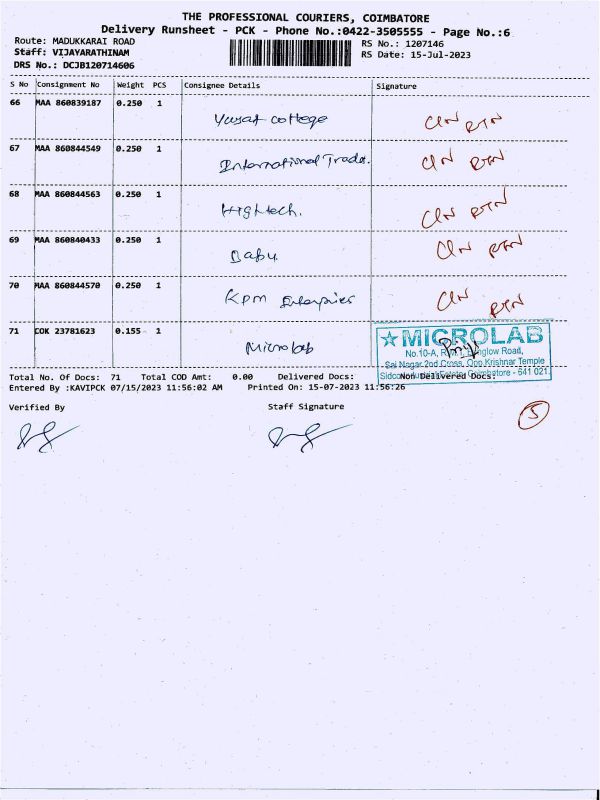 THE PROFESSIONAL COURIERS, COIMBATORE
Delivery Runsheet - PCK - Phone No.:0422-3505555 - Page No.:6
Route: MADUKKARAI ROAD RS No.: 1207146
Staff: VIJAYARATHINAM RS Date: 15-Jul-2023
DRS No.: DCJB120714606
S No Consignment No Weight PCS Consignee Details Signature
66 MAA 860839187 0.250 1 college
67 MAA 860844549 0.250 1 International Trade.
68 MAA 860844563 0.250 1 Hightech.
69 MAA 860840433 0.250 1 Babu
70 MAA 860844570 0.250 1 KPM Enterprises
71 COK 23781623 0.155 1 Microlab
MICROLAB
No.10-A,
Sai Nagar 2nd Cross, Opp Krishnar Temple
Coimbatore - 641 021.
Total No. Of Docs: 71 Total COD Amt: 0.00 Delivered Docs: Non Delivered Docs:
Entered By :KAVIPCK 07/15/2023 11:56:02 AM Printed On: 15-07-2023 11:56:26
Verified By Staff Signature
5